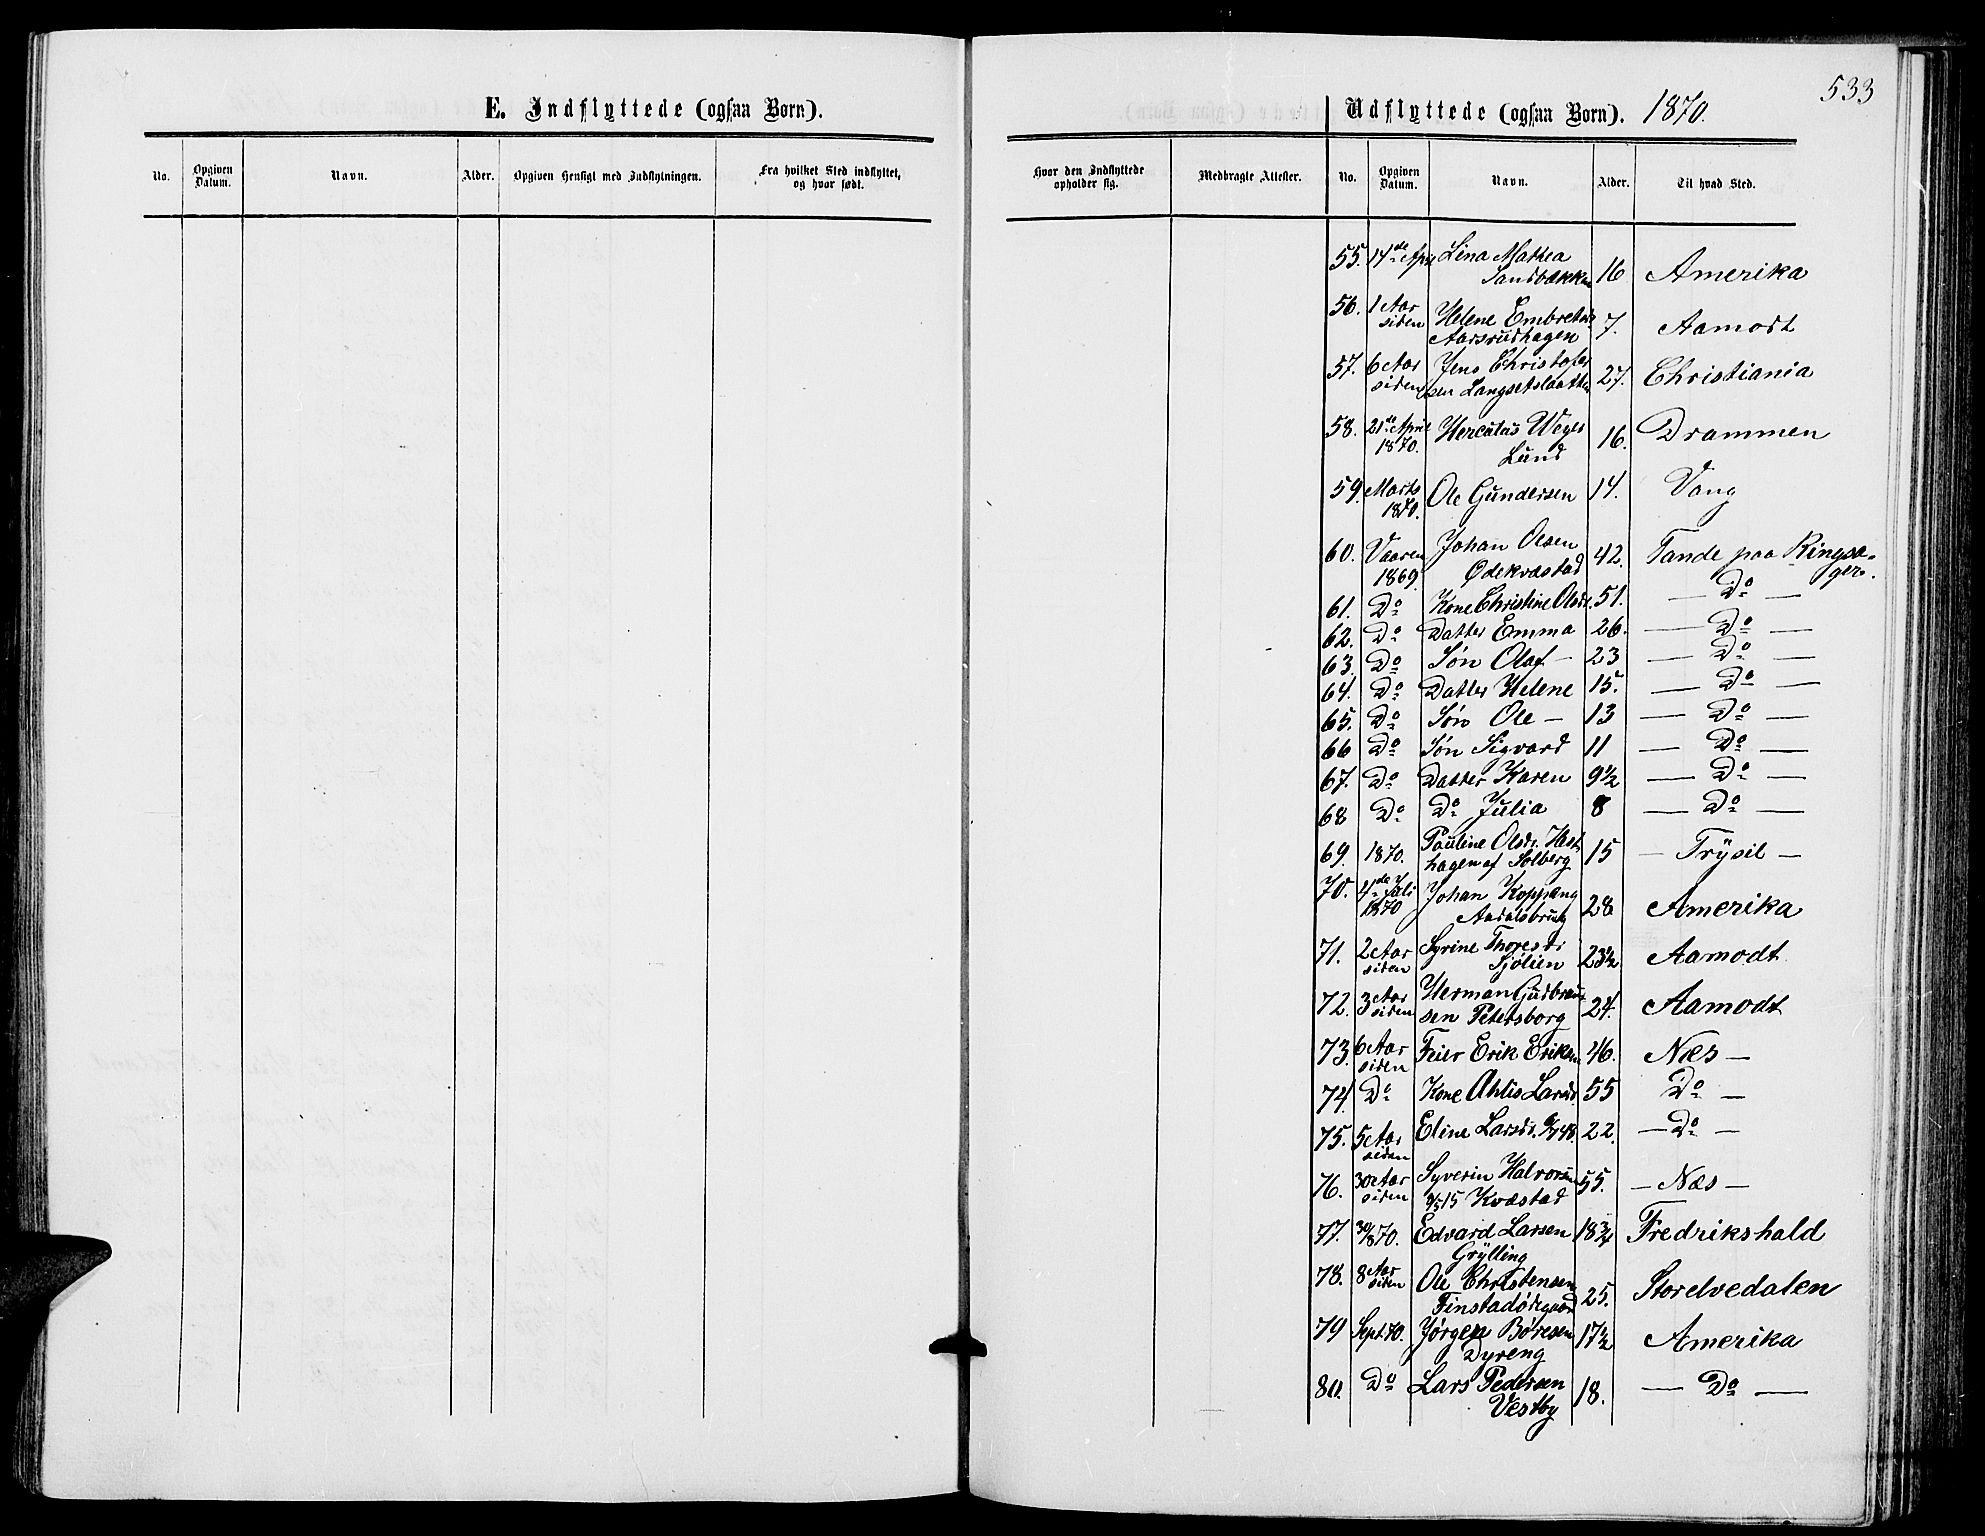 533
E. Indflyttede (ogsaa Børn).
Udflyttede (ogsaa Børn). 1870.
No. Opgiven Datum. Navn. Alder. Opgiven Hensigt med Indflytningen. Fra hvilket Sted indflyttet, og hvor født.
Hvor den Indflyttede opholder sig. Medbragte Attester. No. Opgiven Datum. Navn. Alder. Til hvad Sted.
55. 14de April Lina Mathea
Sandbækken 16 Amerika
56. 1 Aar siden Helene Embretsdr
Aarsrudhagen 7. Aamodt
57. 6 Aar siden Jens Christofer
sen Langsetslaatten 27. Christiania
58. 21de April 1870. Herculus Weger
Lund 16. Drammen
59. Marts 1870. Ole Gundersen 14. Vang
60. Vaaren 1869. Johan Olsen
Ødekvæstad 42. Tande paa Ringsa-
ger.
61. Do Kone Christine Olsdr. 51. — Do —
62. Do Datter Emma 26. — Do —
63. Do Søn Olaf — 23 — Do —
64. Do Datter Helene 15. — Do —
65. Do Søn Ole — 13 — Do —
66 Do Søn Sigvard 11 — Do —
67. Do Datter Karen 9½ — Do —
68 Do Do Julia 8 — Do —
69. 1870. Pauline Olsdr. Hest
hagen af Solberg 15 — Trÿsil —
70. 4de Juli 1870 Johan Koppang
Aadalsbrug 28 Amerika
71. 2 Aar siden Syrine Thoresdr
Sjølien 23½ Aamodt
72. 3 Aar siden Herman Gudbrand
sen Petersborg 24. Aamodt
73. 6 Aar siden Feier Erik Eriksen 46. Næs —
74. Do Kone Ahlis Larsd. 55 Do —
75. 5 Aar siden Eline Larsdr. 22. — Do —
76. 30 Aar siden Syverin Halvorsen
Kvæstad 55. — Næs —
77. 30/8 70. Edvard Larsen
Grÿlling 18¾ Fredrikshald
78. 8 Aar siden Ole Christensen
Finstadødegaard 25. Storelvedalen
79 Sept. 70. Jørgen Børesen
Dyreng 17½ Amerika
80. Do Lars Pedersen
Vestby 18. — Do —